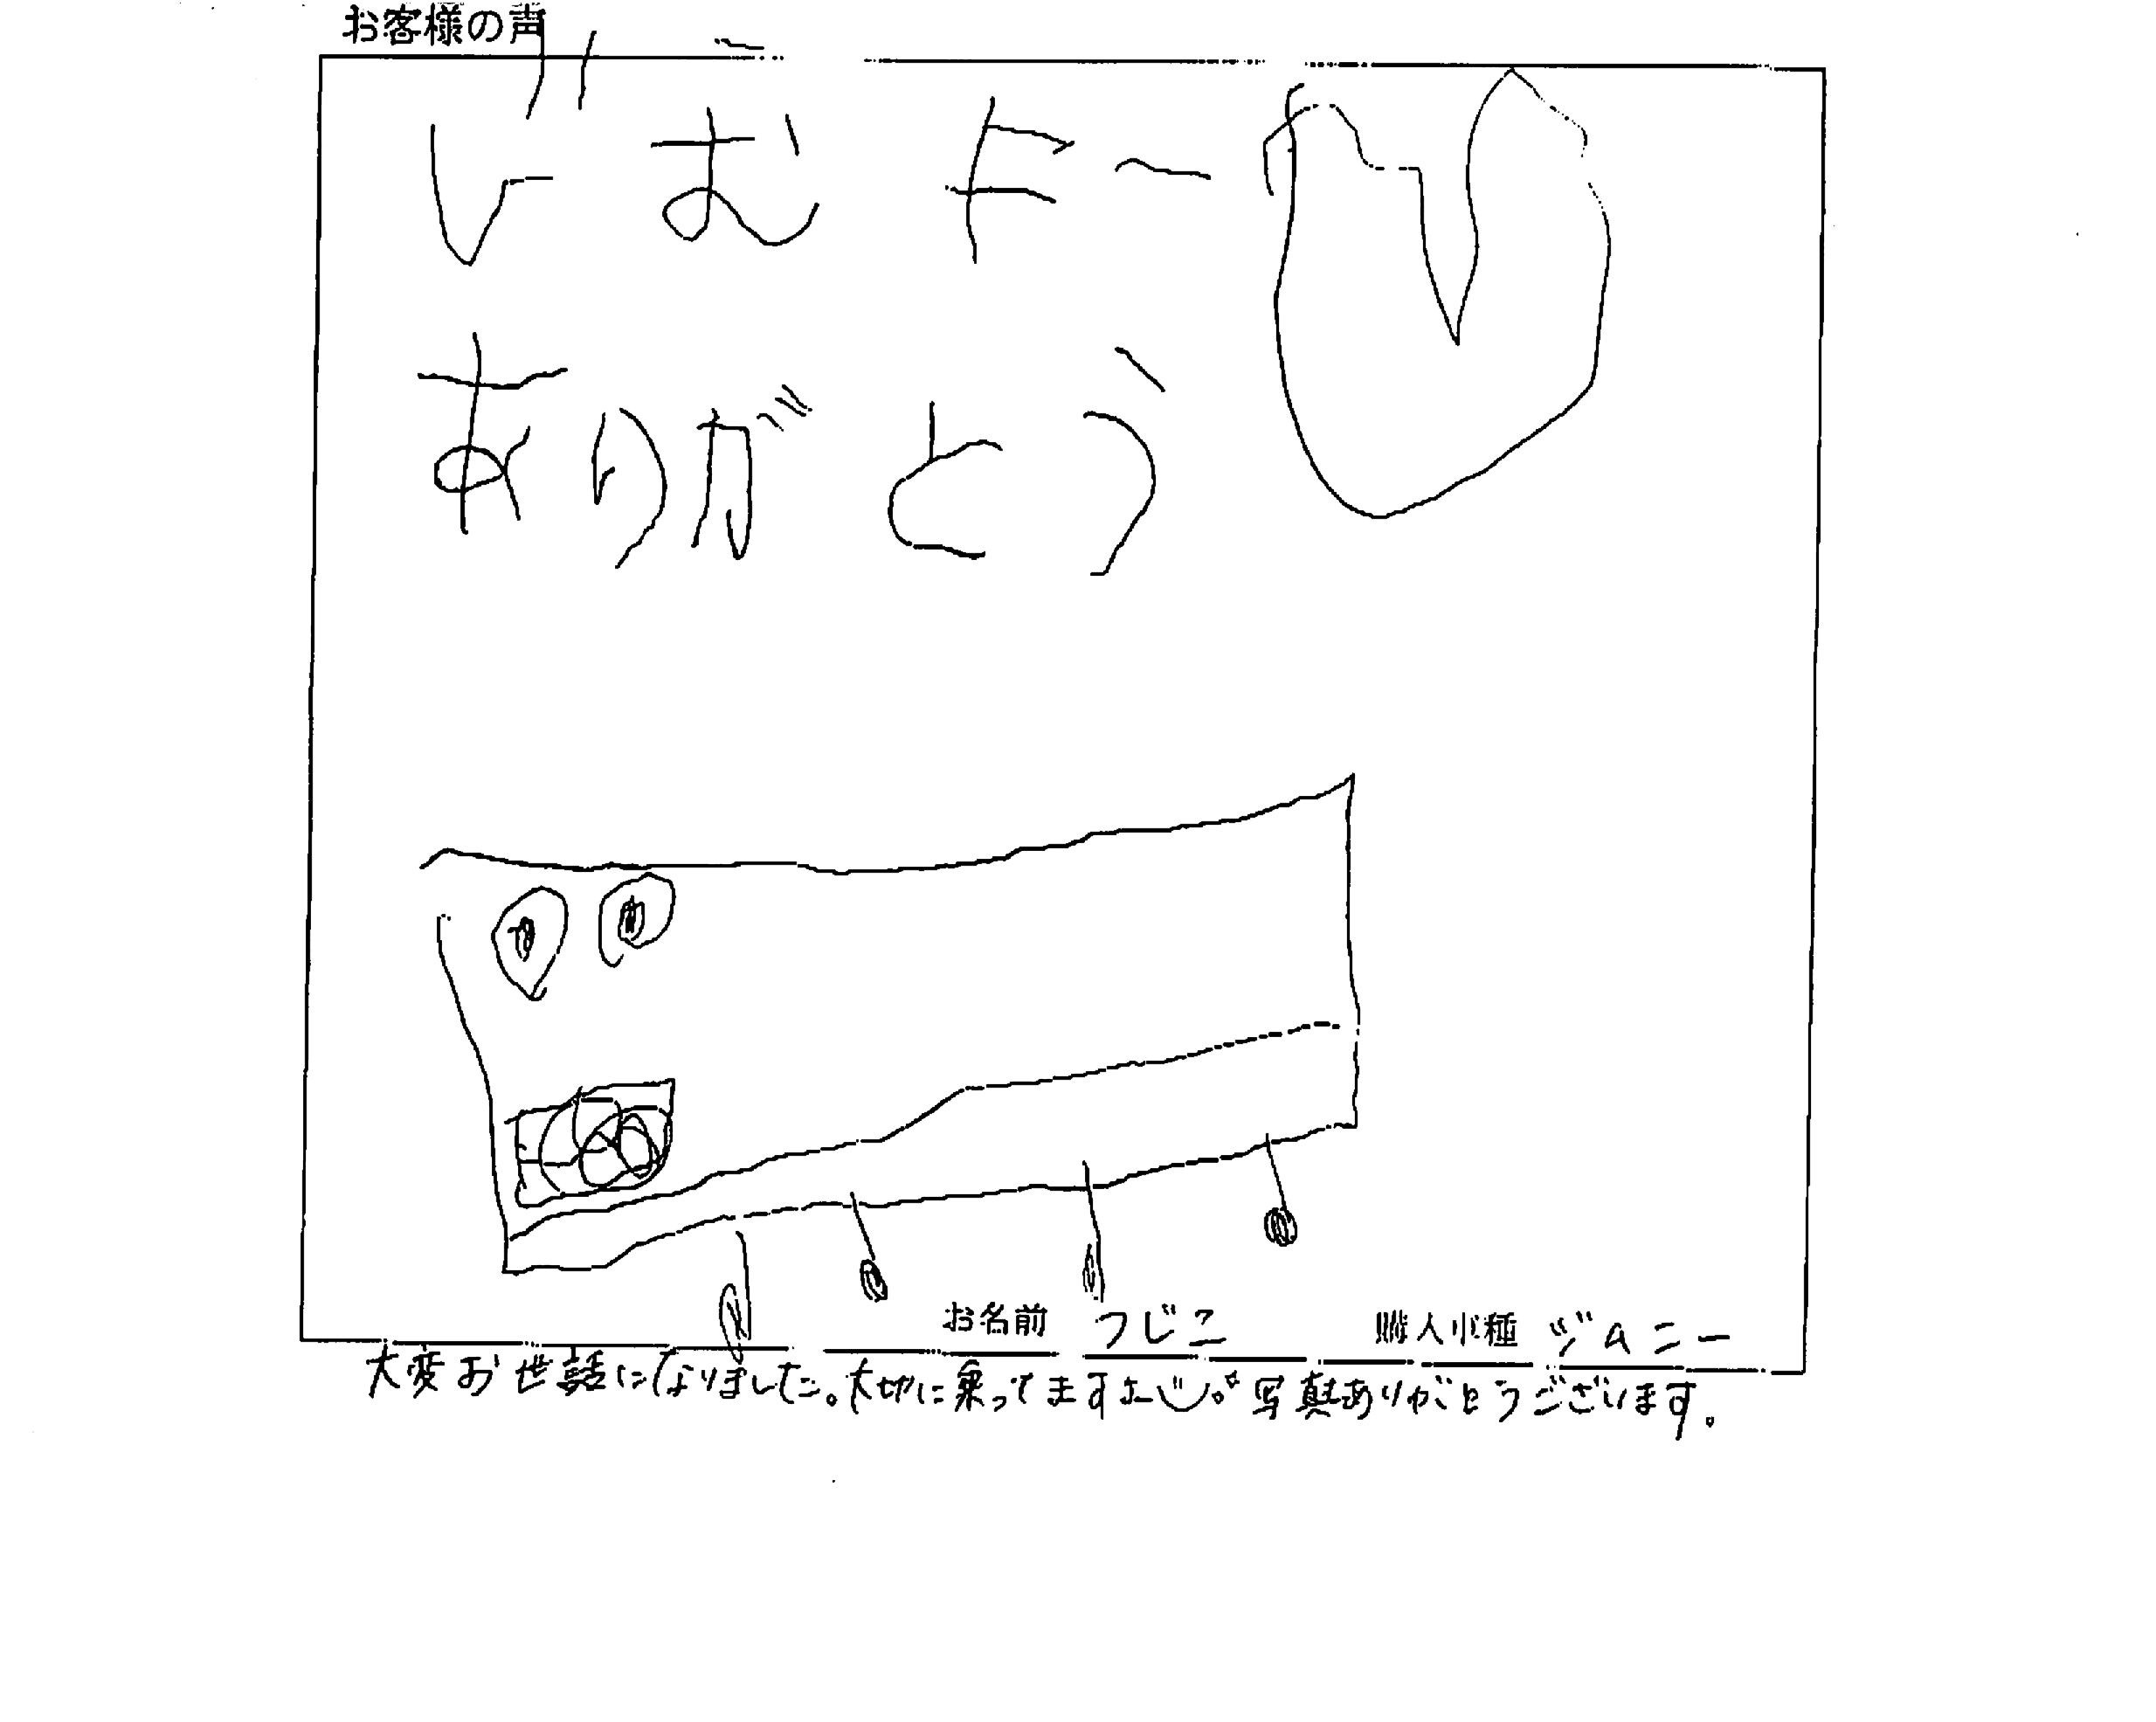 お客様の声
じむにー
ありがとう
お名前 つじこ 購入車種 ジムニー
大変お世話になりました。大切に乗ってますよ〜。写真ありがとうございます。